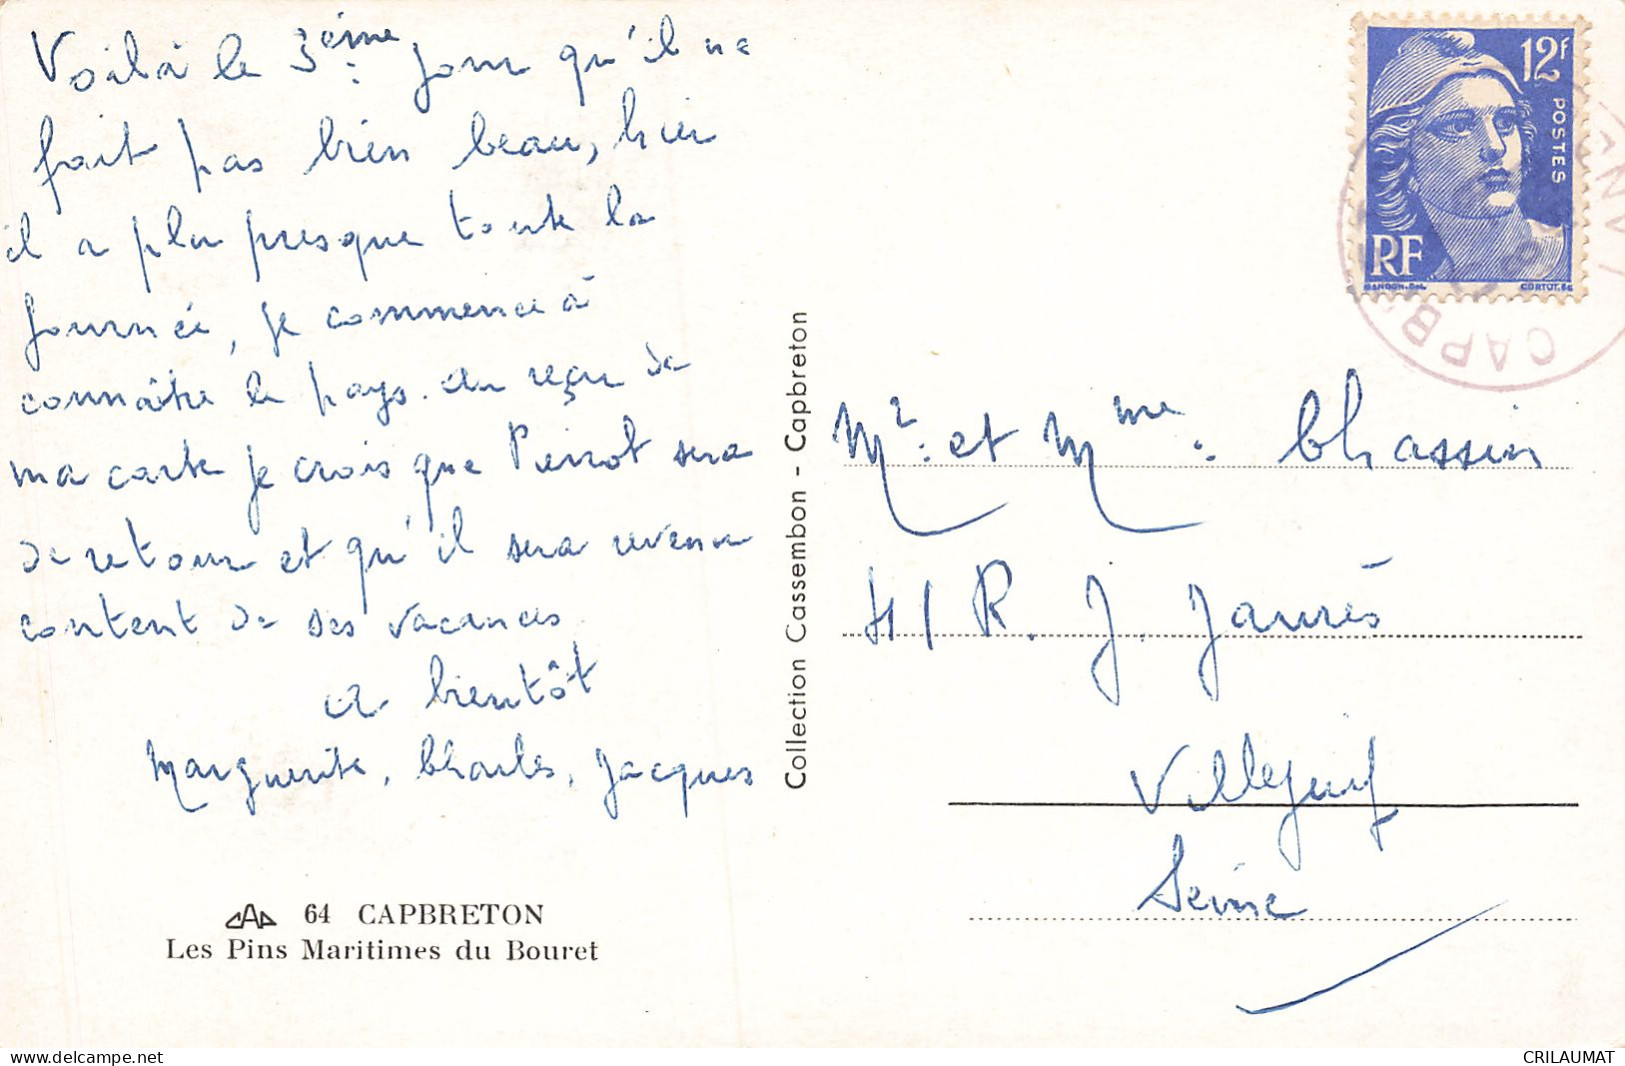 Voilà le 3ème jour qu'il ne
fait pas bien beau, hier
il a plu presque toute la
journée, je commence à
connaître le pays. au reçu de
ma carte je crois que Pierrot sera
de retour et qu'il sera revenu
content de ses vacances
a bientôt
Marguerite, Charles, Jacques
64 CAPBRETON
Les Pins Maritimes du Bouret
Collection Cassembon - Capbreton
12F
POSTES
RF
GANDON.DEL.
CORTOT.SC
CAPB
Mr. et Mme. Chassin
41 R. J. Jaurès
Villejuif
Seine
delcampe.net
CRILAUMAT